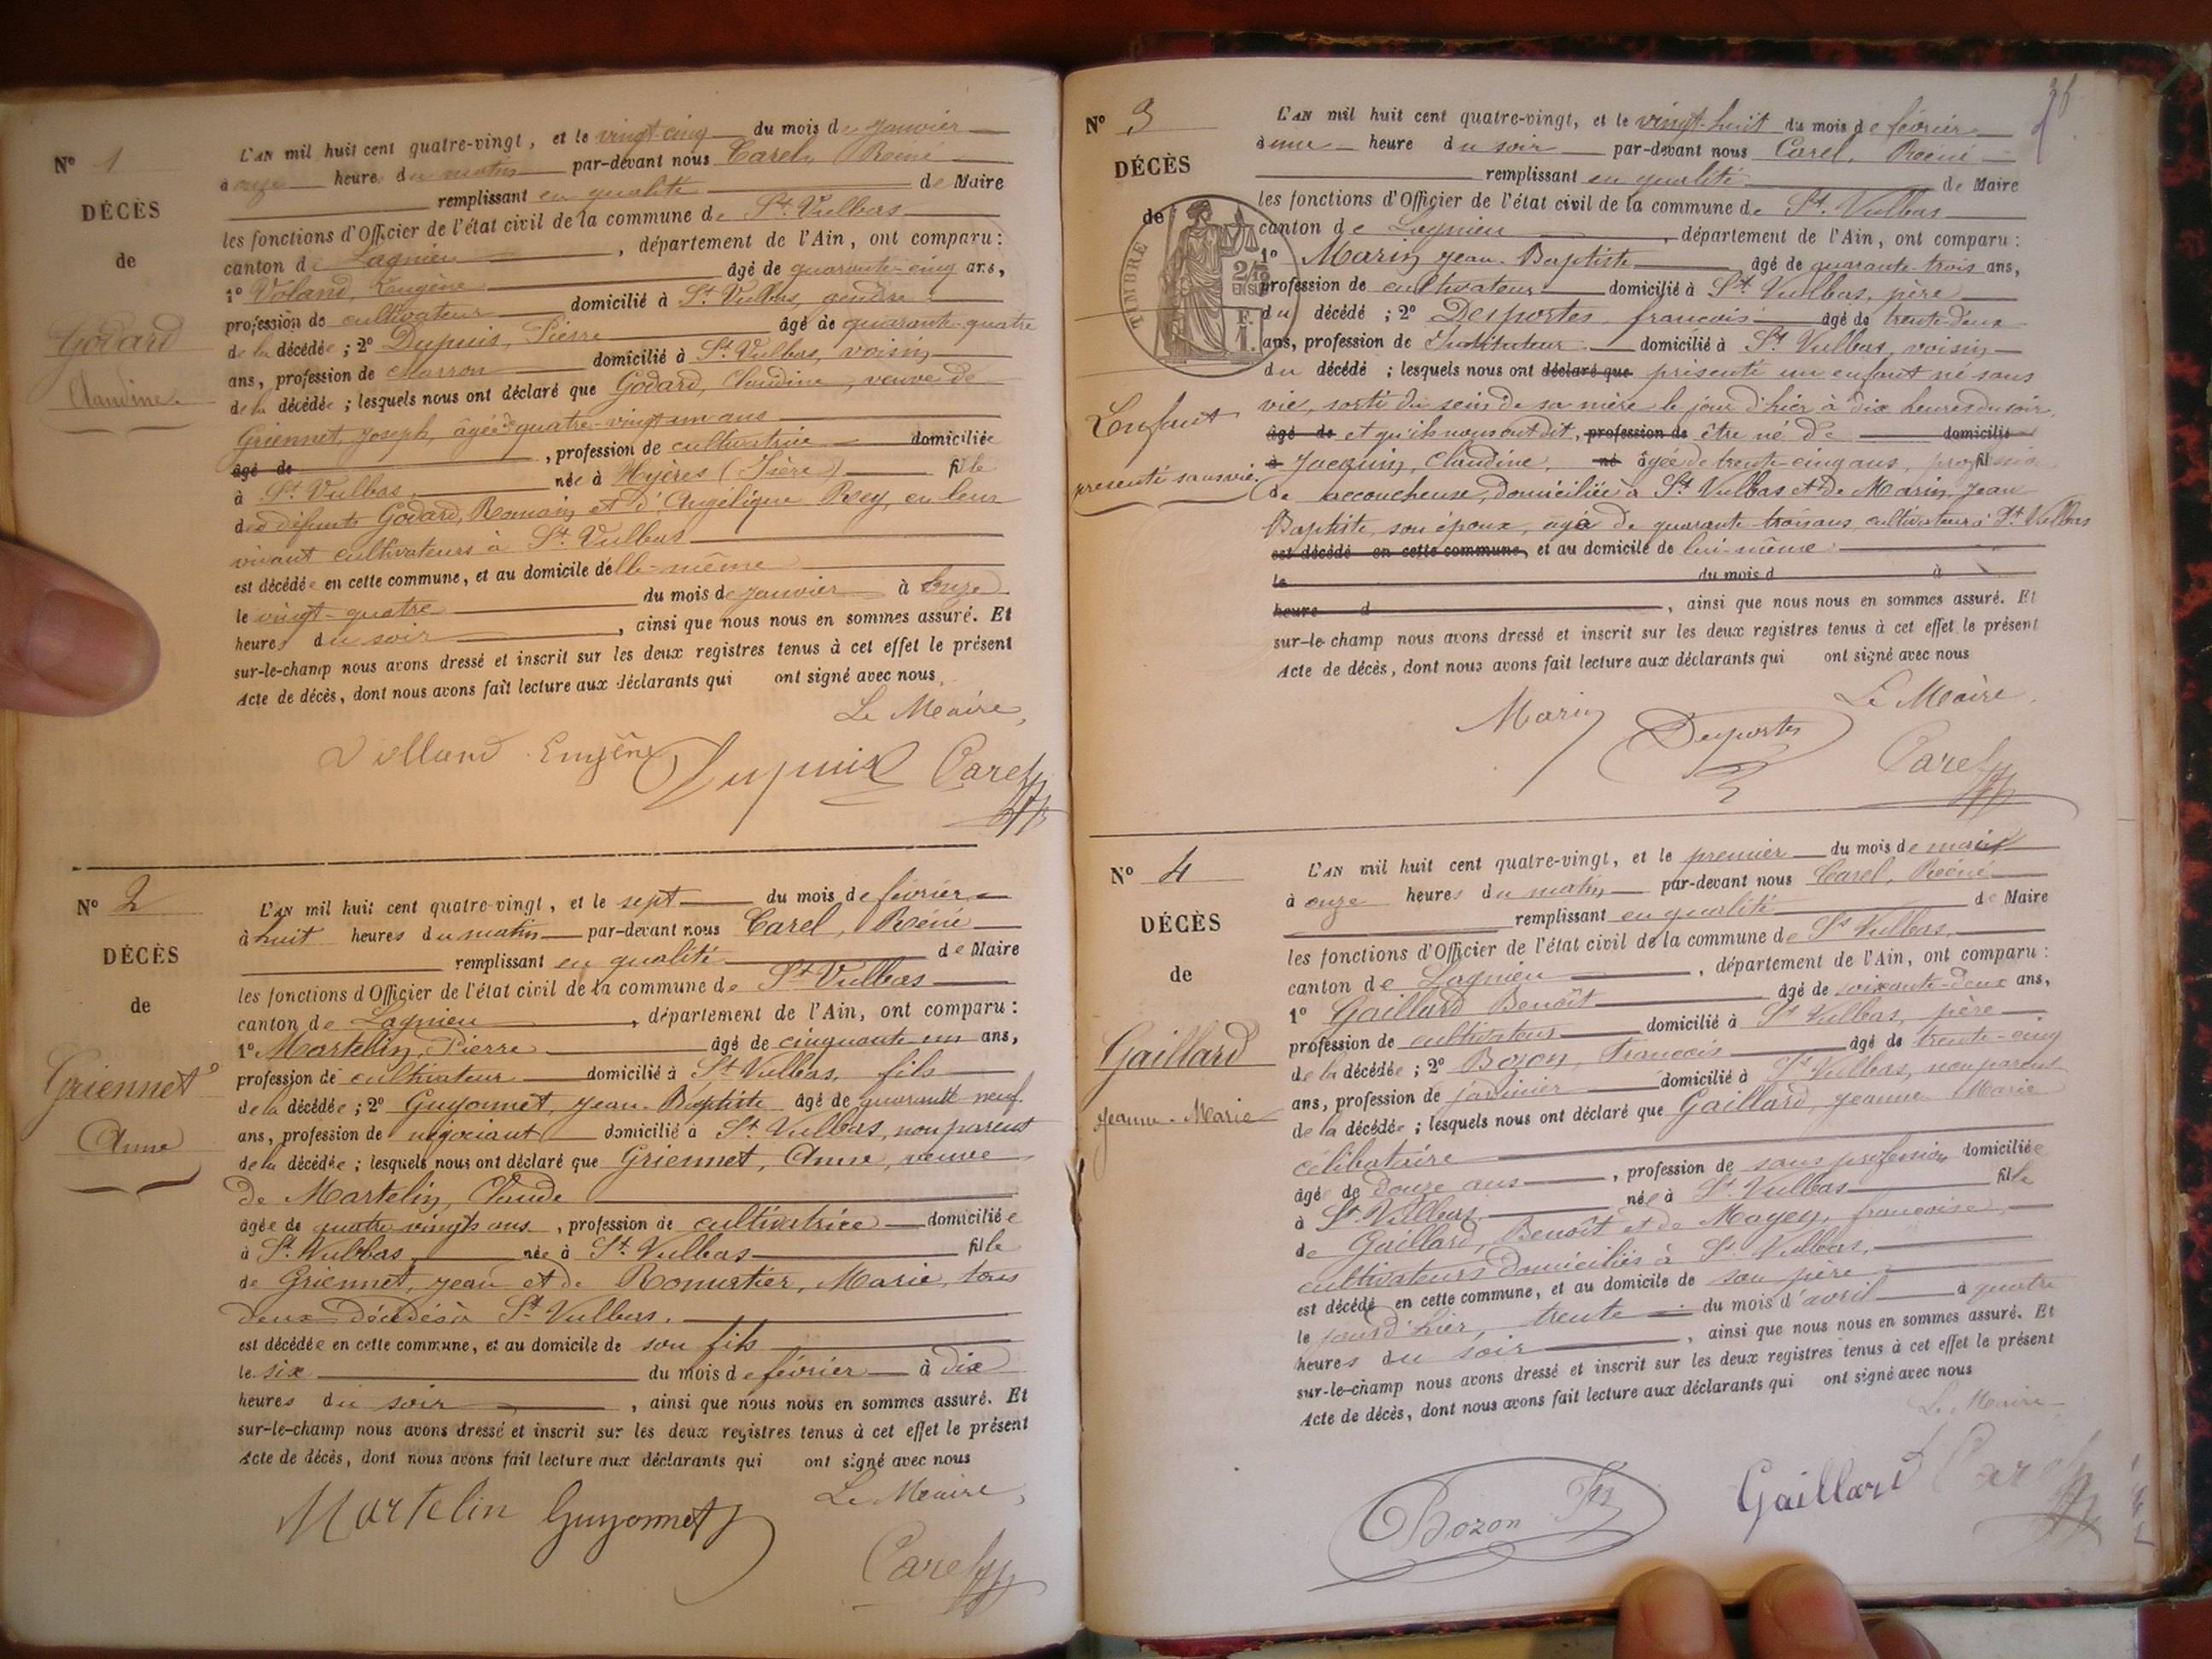 N° 1
DÉCÈS
de
Godard
Claudine.
L'AN mil huit cent quatre-vingt, et le vingt-cinq du mois de janvier
à onze heures du matin par-devant nous Carel, Réné
remplissant en qualité de Maire
les fonctions d'Officier de l'état civil de la commune de St. Vulbas
canton de Lagnieu, département de l'Ain, ont comparu:
1° Voland, Eugène âgé de quarante-cinq ans,
profession de cultivateur domicilié à St. Vulbas, gendre
de la décédée; 2° Dupuis, Pierre âgé de quarante-quatre
ans, profession de domicilié à St. Vulbas, voisin
de la décédée; lesquels nous ont déclaré que Godard, Claudine, veuve de
Griennet, Joseph, âgée de quatre-vingt-un ans
âgé de, profession de cultivatrice domiciliée
à St. Vulbas, née à Hyères (Isère) fille
des défunts Godard, Romain et d'Angélique Rey, en leur
vivant cultivateurs à St. Vulbas
est décédée en cette commune, et au domicile d'elle-même
le vingt-quatre du mois de janvier à onze
heures du soir, ainsi que nous nous en sommes assuré. Et
sur-le-champ nous avons dressé et inscrit sur les deux registres tenus à cet effet le présent
Acte de décès, dont nous avons fait lecture aux déclarants qui ont signé avec nous.
Le Maire,
Volland Eugène Dupuis Carel
N° 2
DÉCÈS
de
Griennet
Anne
L'AN mil huit cent quatre-vingt, et le sept du mois de février
à huit heures du matin par-devant nous Carel, Réné
remplissant en qualité de Maire
les fonctions d'Officier de l'état civil de la commune de St. Vulbas
canton de Lagnieu, département de l'Ain, ont comparu:
1° Martelin, Pierre âgé de cinquante un ans,
profession de cultivateur domicilié à St. Vulbas, fils
de la décédée; 2° Guyonnet, Jean-Baptiste âgé de quarante neuf
ans, profession de négociant domicilié à St. Vulbas, non parent
de la décédée; lesquels nous ont déclaré que Griennet, Anne, veuve
de Martelin, Claude
âgée de quatre vingts ans, profession de cultivatrice domiciliée
à St. Vulbas née à St. Vulbas fille
de Griennet, Jean et de Marie, tous
deux décédés à St. Vulbas.
est décédée en cette commune, et au domicile de son fils
le six du mois de février à dix
heures du soir, ainsi que nous nous en sommes assuré. Et
sur-le-champ nous avons dressé et inscrit sur les deux registres tenus à cet effet le présent
Acte de décès, dont nous avons fait lecture aux déclarants qui ont signé avec nous
Le Maire,
Martelin Guyonnet
Carel
N° 3
DÉCÈS
de
TIMBRE
2/10 EN SUS
F. 1.
L'enfant
présenté sans vie.
L'AN mil huit cent quatre-vingt, et le vingt-huit du mois de février
à une heure du soir par-devant nous Carel, Réné
remplissant en qualité de Maire
les fonctions d'Officier de l'état civil de la commune de St. Vulbas
canton de Lagnieu, département de l'Ain, ont comparu:
1° Marin Jean-Baptiste âgé de quarante-trois ans,
profession de cultivateur domicilié à St. Vulbas, père
du décédé; 2° Desportes françois âgé de trente deux
ans, profession de Instituteur domicilié à St. Vulbas, voisin
du décédé; lesquels nous ont déclaré que présenté un enfant né sans
vie, sorti du sein de sa mère le jour d'hier à dix heures du soir,
âgé de et qu'ils nous ont dit, profession de être né de domicilié
à Jacquin, Claudine, né âgée de trente-cinq ans, profession
de accoucheuse, domiciliée à St. Vulbas et de Marin, Jean
Baptiste, son époux, âgé de quarante trois ans, cultivateur à St. Vulbas
est décédé en cette commune, et au domicile de lui-même
le du mois d à
heure d, ainsi que nous nous en sommes assuré. Et
sur-le-champ nous avons dressé et inscrit sur les deux registres tenus à cet effet le présent
Acte de décès, dont nous avons fait lecture aux déclarants qui ont signé avec nous
Le Maire,
Marin Desportes Carel
N° 4
DÉCÈS
de
Gaillard
Jeanne-Marie
L'AN mil huit cent quatre-vingt, et le premier du mois de mai
à onze heures du matin par-devant nous Carel, Réné
remplissant en qualité de Maire
les fonctions d'Officier de l'état civil de la commune de St Vulbas,
canton de Lagnieu, département de l'Ain, ont comparu:
1° Gaillard Benoît âgé de soixante-deux ans,
profession de cultivateur domicilié à St Vulbas, père
de la décédée; 2° Bozon, François âgé de trente-cinq
ans, profession de jardinier domicilié à St Vulbas, non parent
de la décédée; lesquels nous ont déclaré que Gaillard, Jeanne Marie
célibataire
âgée de douze ans, profession de sans profession domiciliée
à St. Vulbas, née à St. Vulbas fille
de Gaillard, Benoît et de Mayen, françoise,
cultivateurs domiciliés à St Vulbas,
est décédé en cette commune, et au domicile de son père
le jour d'hier, trente du mois d'avril à quatre
heures du soir, ainsi que nous nous en sommes assuré. Et
sur-le-champ nous avons dressé et inscrit sur les deux registres tenus à cet effet le présent
Acte de décès, dont nous avons fait lecture aux déclarants qui ont signé avec nous
Le Maire
Bozon Gaillard Carel